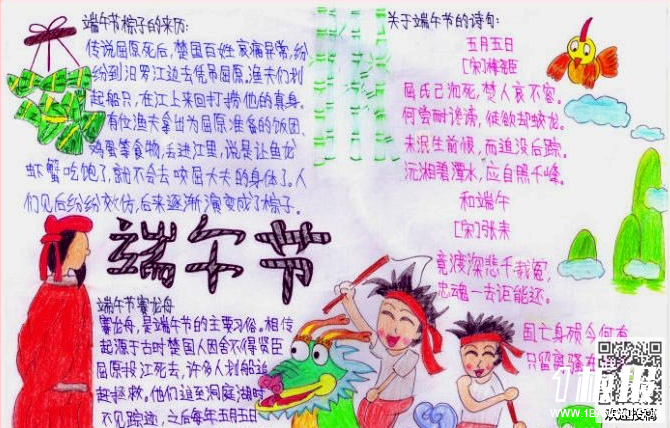 端午节粽子的来历:
传说屈原死后，楚国百姓哀痛异常，纷
纷到汨罗江边去凭吊屈原，渔夫们划
起船只，在江上来回打捞他的真身。
有位渔夫拿出为屈原准备的饭团、
鸡蛋等食物，丢进江里，说是让鱼龙
虾蟹吃饱了，就不会去咬屈大夫的身体了。人
们见后纷纷效仿，后来逐渐演变成了粽子。
端午节
端午节赛龙舟
赛龙舟，是端午节的主要习俗。相传
起源于古时楚国人因舍不得贤臣
屈原投江死去，许多人划船追
赶拯救。他们追至洞庭湖时
不见踪迹，之后每年五月五日
关于端午节的诗句:
五月五日
[宋]梅尧臣
屈氏已沉死，楚人哀不容。
何尝奈谗谤，徒欲却蛟龙。
未泯生前恨，而追没后踪。
沅湘碧潭水，应自照千峰。
和端午
[宋]张耒
竞渡深悲千载冤，
忠魂一去讵能还。
国亡身殒今何有
只留离骚在